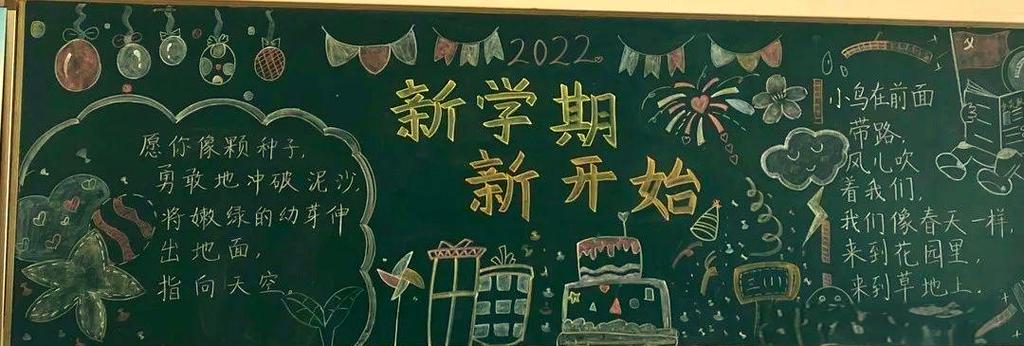 2022
新学期
新开始
愿你像颗种子,
勇敢地冲破泥沙,
将嫩绿的幼芽伸
出地面,
指向天空。
小鸟在前面
带路,
风儿吹
着我们,
我们像春天一样,
来到花园里,
来到草地上。
三(1)